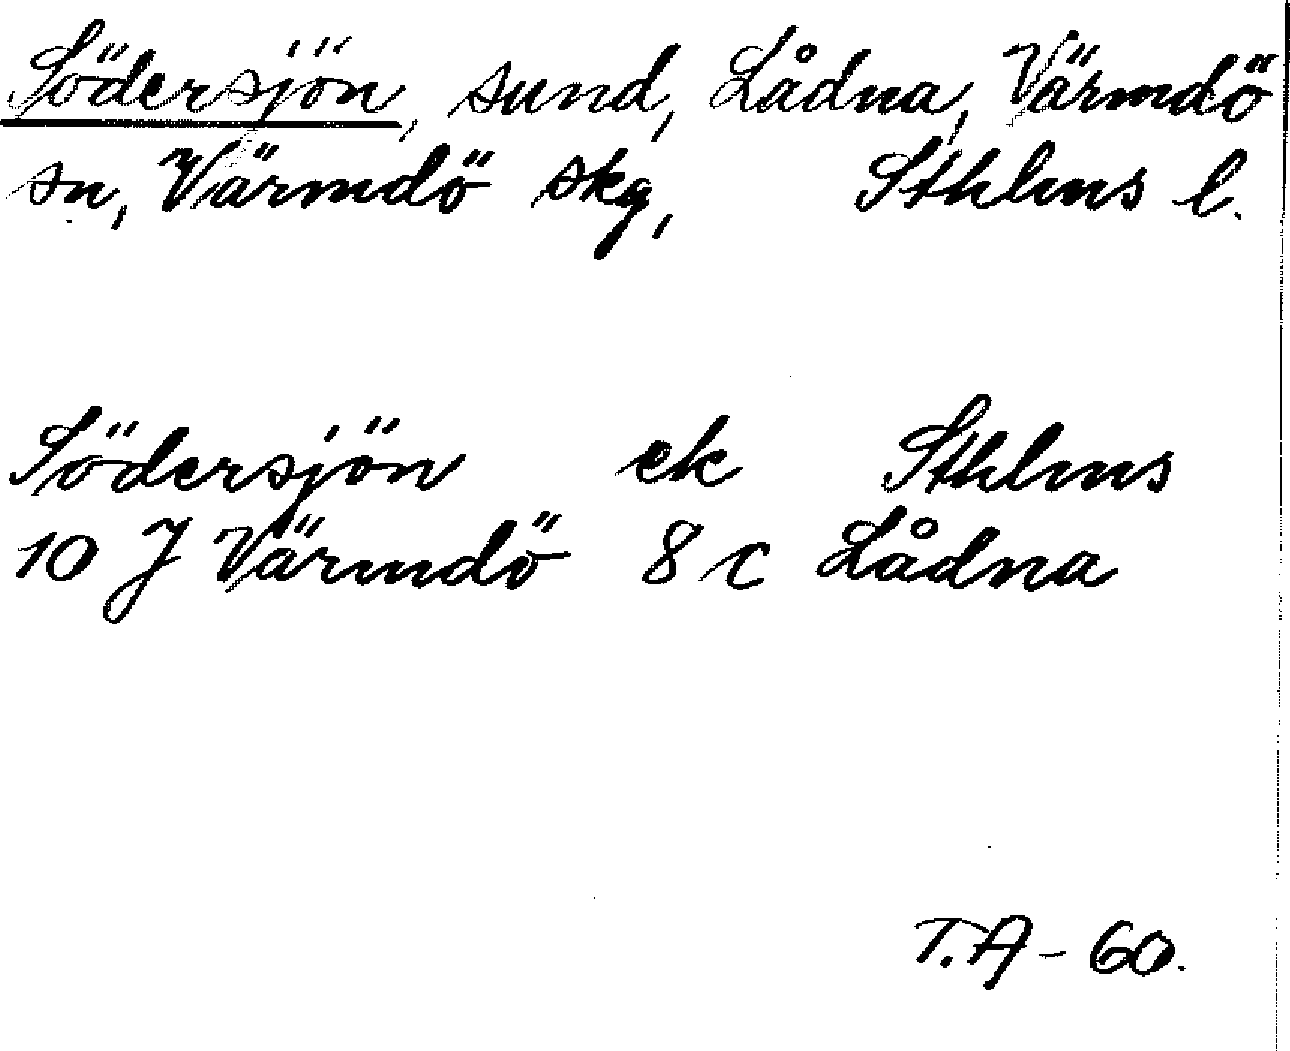 Södersjön, sund, Lådna, Värmdö
sn, Värmdö skg, Sthlms l.
Södersjön ek Sthlms
10 J Värmdö 8 c Lådna
T.A-60.